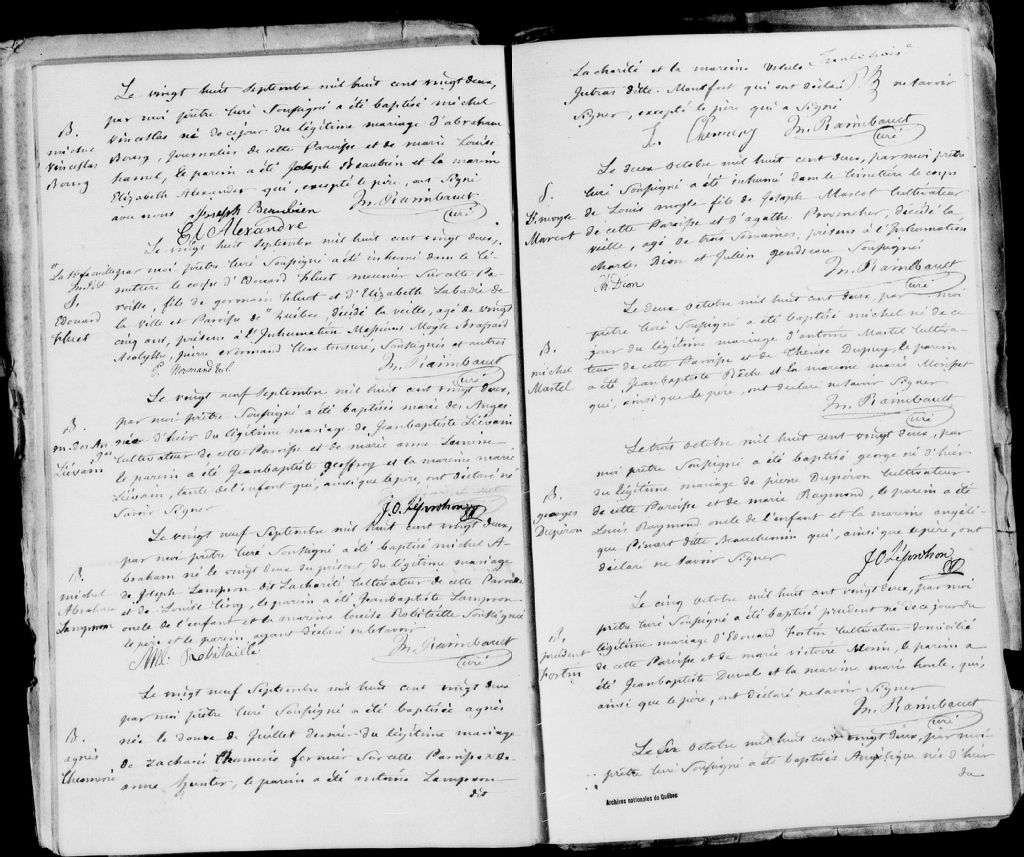 Le vingt huit Septembre mil huit cent vingt deux,
par moi prêtre Curé Soussigné a été baptisé michel
B.
michel
Vinceslas
Bourg
Vinceslas né de ce jour du légitime mariage d'abraham
Bourg, journalier de cette Paroisse et de marie Louise
hamel, le parein a été Joseph Beaubien et la marein
Elizabeth Alexander qui, excepté le père, ont Signé
avec nous Joseph Beaubien M. Raimbault
El Alexandre Curé
Le vingt huit Septembre mil huit cent vingt deux,
par moi prêtre Curé Soussigné a été inhumé dans le Ci-
S.
Edouard
hluet
metiere le corps d'Edouard hluet meunier Sur cette Pa-
roisse, fils de germain hluet et d'Elizabeth Labadie de
la Ville et Paroisse de Québec, décédé la veille, agé de vingt
cinq ans, présens à l'Inhumation Messieurs Moyse Brassard
Acolythe, pierre Clerc tonsuré, Soussignés et autres
P. Normand Ecl. M. Raimbault
Curé
Le vingt neuf Septembre mil huit cent vingt deux,
par moi prêtre Soussigné a été baptisée marie des Anges
B.
m. des An
ges
Liévain
née d'hier du légitime mariage de Jeanbaptiste Liévain
Cultivateur de cette Paroisse et de marie anne
le parein a été Jeanbaptiste geoffroy et la mareine marie
Liévain, tante de l'enfant qui, ainsi que le père, ont déclaré ne
Savoir Signer J. O. Léprohon
Le vingt neuf Septembre mil huit cent vingt deux,
par moi prêtre Curé Soussigné a été baptisé michel A-
B.
michel
Abraham
Lampron
braham né le vingt deux du présent du légitime mariage
de Joseph Lampron dit Lacharité Cultivateur de cette Paroisse
et de Louise Cirey, le parein a été Jeanbaptiste Lampron
oncle de l'enfant et la mareine Louise Robitaille Soussignée
le père et le parein, ayant déclaré ne le Savoir
Robitaille M. Raimbault
Curé
Le vingt neuf Septembre mil huit cent vingt deux
par moi prêtre Curé Soussigné a été baptisée agnès
B.
agnès
née le douze de Juillet dernier du légitime mariage
de Zacharie fermier Sur cette Paroisse & de
anne hunter, le parein a été antoine Lampron
dit
Lacharité et la mareine Ursule
Jutras ditte Montfort qui ont déclaré ne Savoir
Signer, excepté le père qui a Signé
M. Raimbault
Curé
Le deux Octobre mil huit cent deux, par moi prêtre
S.
Ls. moyse
Marcot
Curé Soussigné a été inhumé dans le Cimetiere le corps
de Louis moyse fils de Joseph Marcot Cultivateur
de cette Paroisse et d'agathe Provencher, décédé la
veille, agé de trois Semaines, présens à l'Inhumation
Charles Dion et Julien gendreau Soussignés
Dion M. Raimbault
Curé
Le deux Octobre mil huit cent deux, par moi
prêtre Curé Soussigné a été baptisé michel né de ce
B.
michel
Martel
jour du légitime mariage d'antoine Martel Cultiva-
teur de cette Paroisse et de Therèse Dupuy, le parein
a été Jeanbaptiste Rèche et la mareine marie Morisset
qui, ainsi que le père, ont déclaré ne Savoir Signer
M. Raimbault
Curé
Le trois octobre mil huit cent vingt deux, par
moi prêtre Soussigné a été baptisé george né d'hier
B.
georges
Dupéron
du légitime mariage de pierre Dupéron Cultivateur
de cette Paroisse et de marie Raymond, le parein a été
Louis Raymond oncle de l'enfant et la mareine angéli-
que Pinart ditte Beauchemin qui, ainsi que le père, ont
déclaré ne Savoir Signer
J O Léprohon
Le cinq octobre mil huit cent vingt deux, par moi
prêtre Curé Soussigné a été baptisé prudent né de ce jour du
B.
prudent
Fortin
légitime mariage d'Edouard Fortin Cultivateur domicilié
de cette Paroisse et de marie victoire Morin, le parein a
été Jeanbaptiste Duval et la mareine marie houle, qui,
ainsi que le père, ont déclaré ne Savoir Signer
M. Raimbault
Curé
Le Six Octobre mil huit cent vingt deux, par moi
prêtre Curé Soussigné a été baptisée Angélique née d'hier
du
Archives nationales du Québec